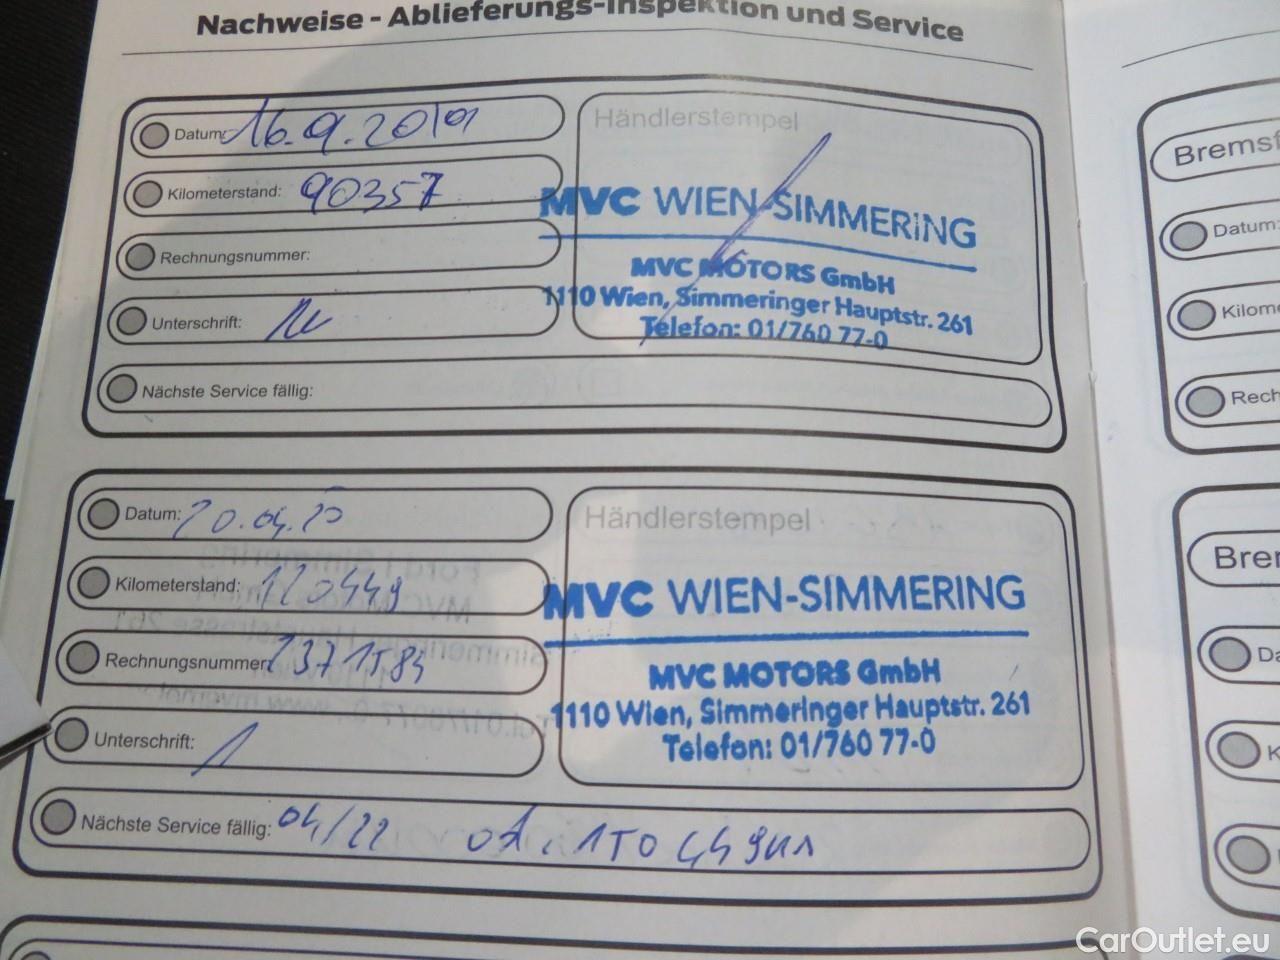 Nachweise - Ablieferungs-Inspektion und Service
Datum: 16.9.2019
Kilometerstand: 90357
Rechnungsnummer:
Unterschrift:
Nächste Service fällig:
Händlerstempel
MVC WIEN-SIMMERING
MVC MOTORS GmbH
1110 Wien, Simmeringer Hauptstr. 261
Telefon: 01/760 77-0
Datum: 20.04.20
Kilometerstand: 120449
Rechnungsnummer:
Unterschrift:
Nächste Service fällig: 04/22 od. 150449km
Händlerstempel
MVC WIEN-SIMMERING
MVC MOTORS GmbH
1110 Wien, Simmeringer Hauptstr. 261
Telefon: 01/760 77-0
Bremsf
Datum:
Kilom
Rech
Brem
Da
K
CarOutlet.eu